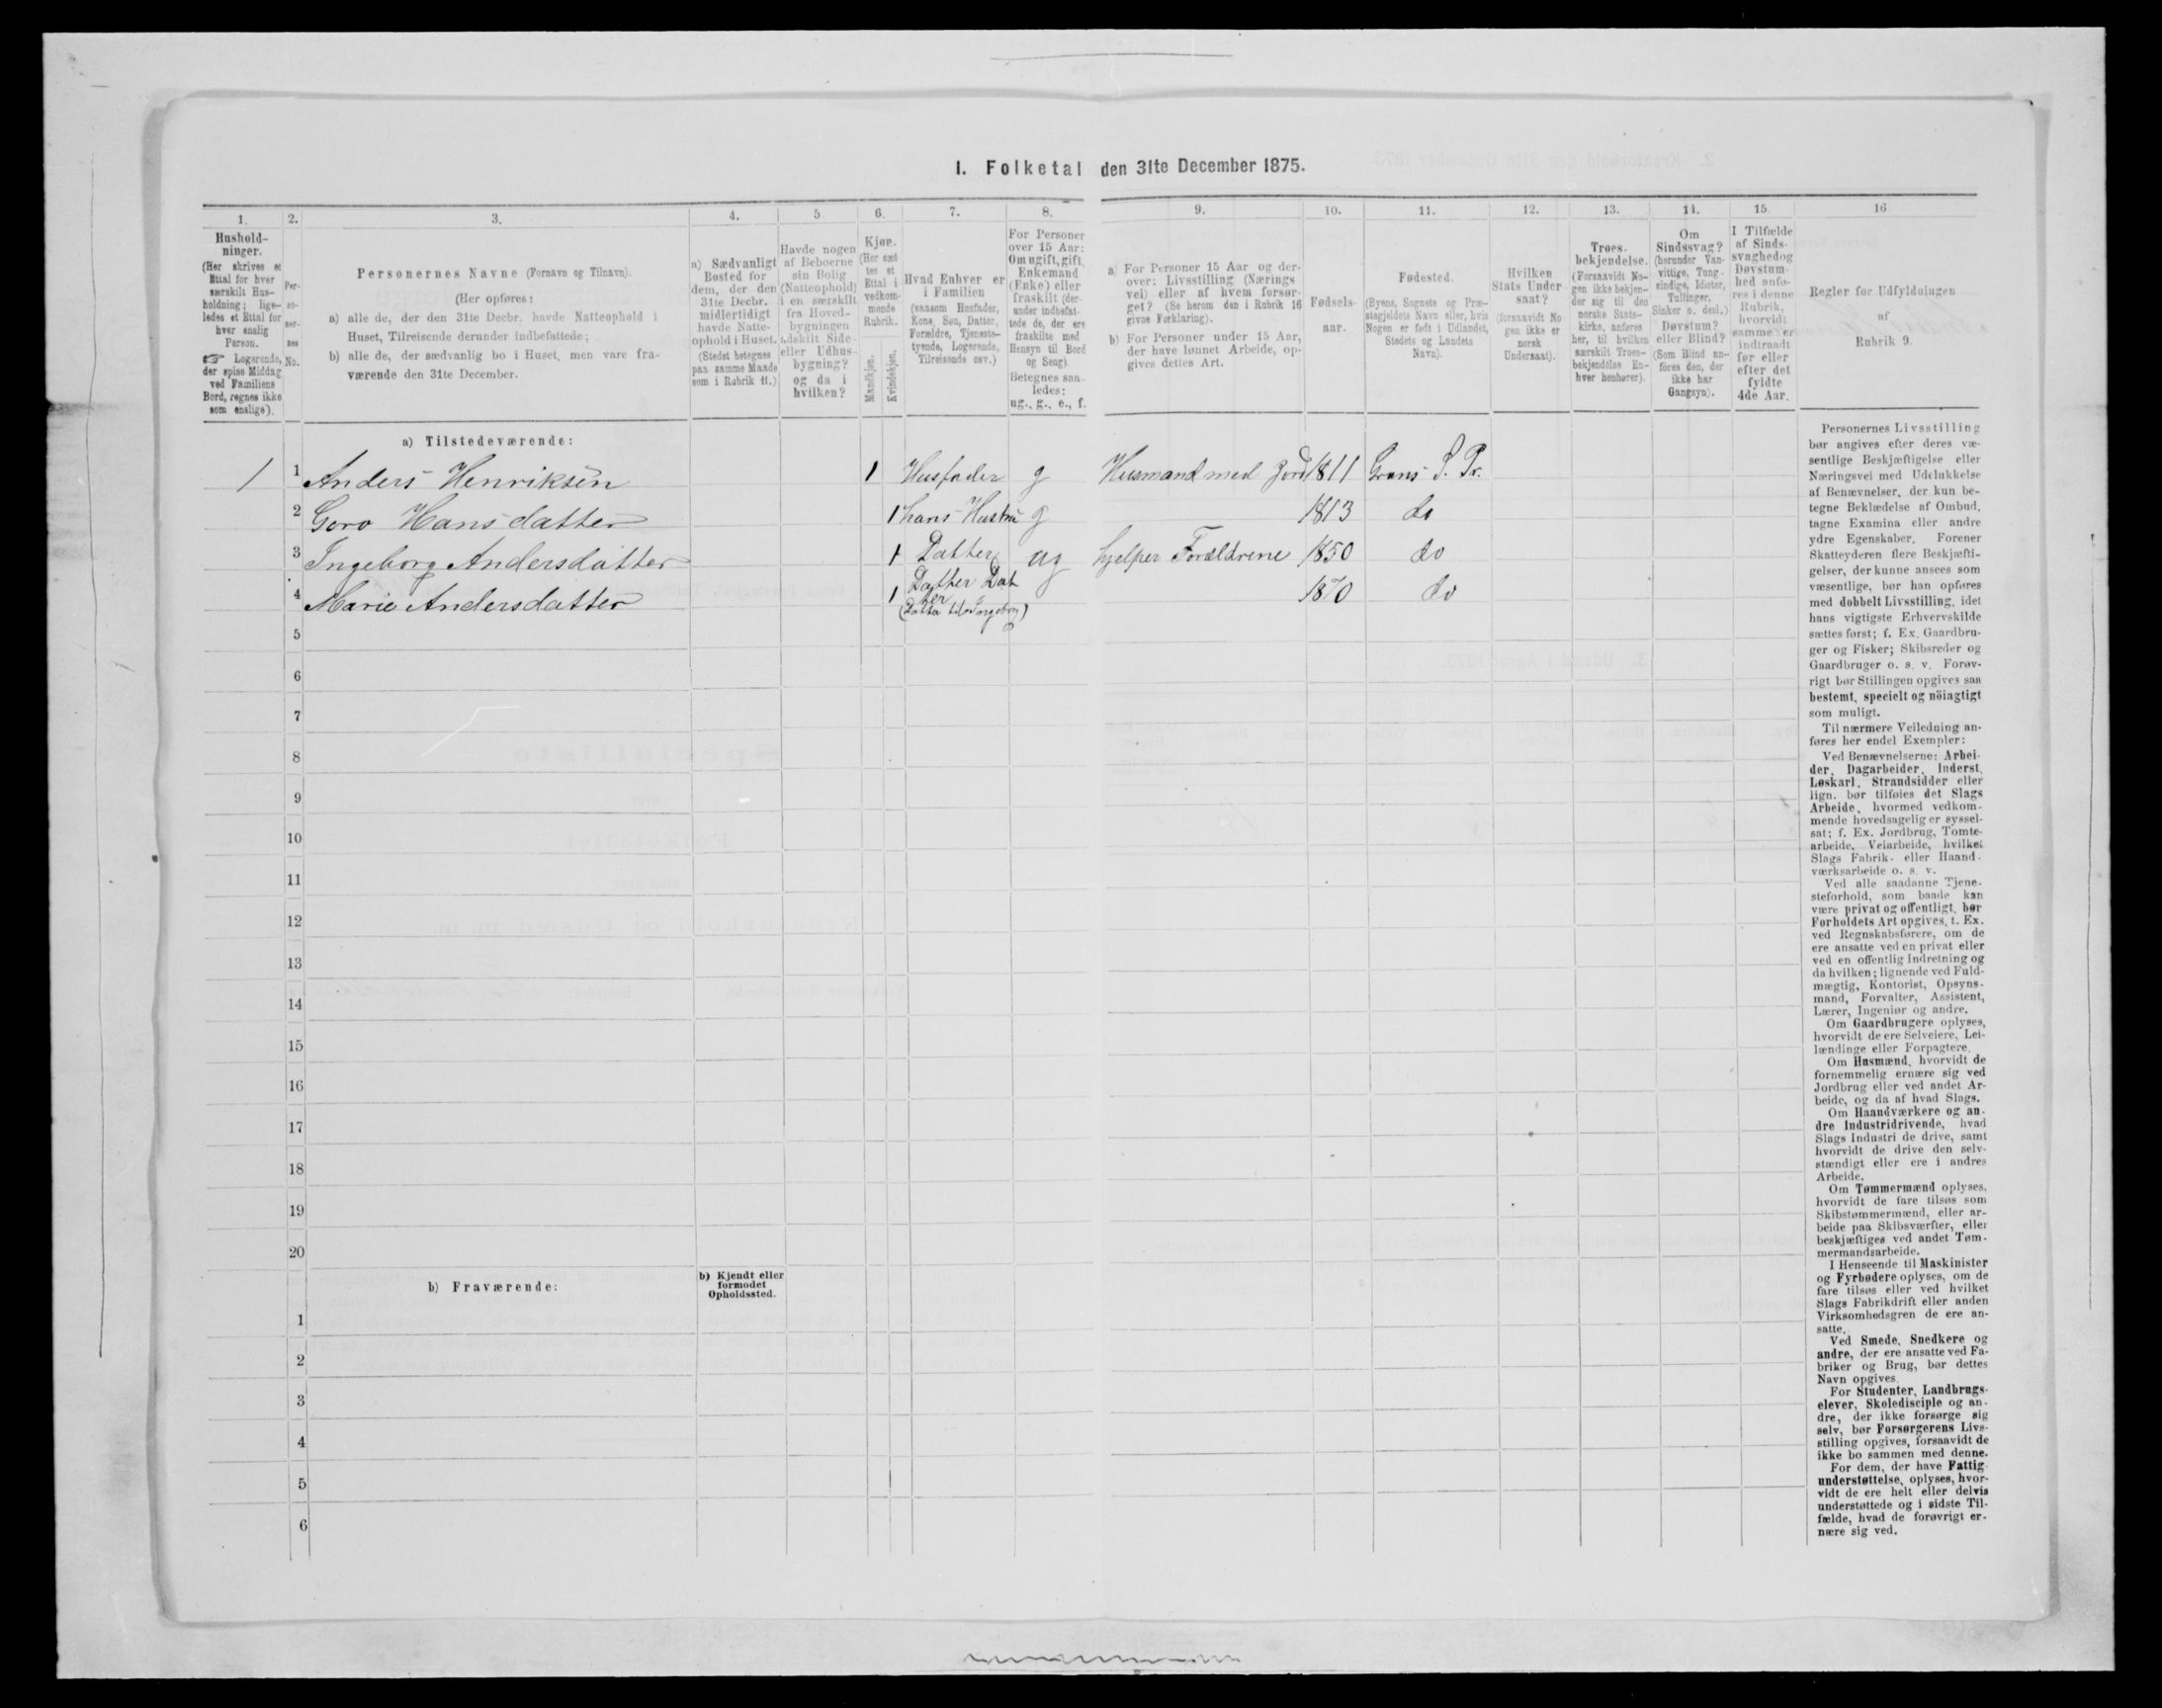 1. Folketal den 31te December 1875.
1. 2. 3. 4. 5 6. 7. 8. 9. 10. 11. 12. 13. 14. 15. 16
Hushold-
ninger.
(Her skrives et
Ettal for hver
særskilt Hus-
holdning; lige-
ledes et Ettal for
hver enslig
Person.
☞ Logerende,
der spise Middag
ved Familiens
Bord, regnes ikke
som enslige).
Per-
so-
ner-
nes
No.
Personernes Navne (Fornavn og Tilnavn).
(Her opføres:
a) alle de, der den 31te Decbr. havde Natteophold i
Huset, Tilreisende derunder indbefattede;
b) alle de, der sædvanlig bo i Huset, men vare fra-
værende den 31te December.
a) Sædvanligt
Bosted for
dem, der den
31te Decbr.
midlertidigt
havde Natte-
ophold i Huset.
(Stedet betegnes
paa samme Maade
som i Rubrik 11.)
Havde nogen
af Beboerne
sin Bolig
(Natteophold)
i en særskilt
fra Hoved-
bygningen
adskilt Side-
eller Udhus-
bygning?
og da i
hvilken?
Kjøn.
(Her sæt
tes et
Ettal i
vedkom-
mende
Rubrik.
Mandkjøn.
Kvindekjøn.
Hvad Enhver er
i Familien
(saasom Husfader,
Kone, Søn, Datter,
Forældre, Tjeneste-
tyende, Logerende,
Tilreisende osv.)
For Personer
over 15 Aar:
Om ugift, gift,
Enkemand
(Enke) eller
fraskilt (der-
under indbefat-
tede de, der ere
fraskilte med
Hensyn til Bord
og Seng).
Betegnes saa-
ledes:
ug., g., e., f.
a) For Personer 15 Aar og der-
over: Livsstilling (Nærings
vei) eller af hvem forsør-
get? (Se herom den i Rubrik 16
givne Forklaring).
b) For Personer under 15 Aar,
der have lønnet Arbeide, op-
gives dettes Art.
Fødsels-
aar.
Fødested.
(Byens, Sognets og Præ-
stegjeldets Navn eller, hvis
Nogen er født i Udlandet,
Stedets og Landets
Navn).
Hvilken
Stats Under
saat?
(forsaavidt No
gen ikke er
norsk
Undersaat).
Troes-
bekjendelse.
(Forsaavidt No-
gen ikke bekjen-
der sig til den
norske Stats-
kirke, anføres
her, til hvilken
særskilt Troes-
bekjendelse En-
hver henhører).
Om
Sindssvag?
(herunder Van-
vittige, Tung-
sindige, Idioter,
Tullinger,
Sinker o. desl.)
Døvstum?
eller Blind?
(Som Blind an-
føres den, der
ikke har
Gangsyn).
I Tilfælde
af Sinds-
svaghedog
Døvstum-
hed anfø-
res i denne
Rubrik,
hvorvidt
samme er
indtraadt
før eller
efter det
fyldte
4de Aar.
Regler for Udfyldningen
af
Rubrik 9.
a) Tilstedeværende:
1 1 Anders Henriksen 1 Husfader g Husmand med Jord 1811 Grans S. Pr.
2 Goro Hansdatter 1 hans Hustru g 1813 do
3 Ingeborg Andersdatter 1 Datter ug hjelper Forældrene 1850 do
4 Marie Andersdatter 1 Datter Dat
ter 1870 do
(Datter til Ingeborg)
5
6
7
8
9
10
11
12
13
14
15
16
17
18
19
20
b) Fraværende:
b) Kjendt eller
formodet
Opholdssted.
1
2
3
4
5
6
Personernes Livsstilling
bør angives efter deres væ-
sentlige Beskjæftigelse eller
Næringsvei med Udelukkelse
af Benævnelser, der kun be-
tegne Beklædelse af Ombud,
tagne Examina eller andre
ydre Egenskaber. Forener
Skatteyderen flere Beskjæfti-
gelser, der kunne ansees som
væsentlige, bør han opføres
med dobbelt Livsstilling, idet
hans vigtigste Erhvervskilde
sættes først; f. Ex. Gaardbru-
ger og Fisker; Skibsreder og
Gaardbruger o. s. v. Forøv-
rigt bør Stillingen opgives saa
bestemt, specielt og nöiagtigt
som muligt.
Til nærmere Veiledning an-
føres her endel Exempler:
Ved Benævnelserne: Arbei-
der, Dagarbeider, Inderst,
Løskarl, Strandsidder eller
lign. bør tilføies det Slags
Arbeide, hvormed vedkom-
mende hovedsagelig er syssel-
sat; f. Ex. Jordbrug, Tomte-
arbeide, Veiarbeide, hvilket
Slags Fabrik- eller Haand-
værksarbeide o. s. v.
Ved alle saadanne Tjene-
steforhold, som baade kan
være privat og offentligt, bør
Forholdets Art opgives, t. Ex.
ved Regnskabsførere, om de
ere ansatte ved en privat eller
ved en offentlig Indretning og
da hvilken; lignende ved Fuld-
mægtig, Kontorist, Opsyns-
mand, Forvalter, Assistent,
Lærer, Ingeniør og andre.
Om Gaardbrugere oplyses,
hvorvidt de ere Selveiere, Lei-
lændinge eller Forpagtere.
Om Husmænd, hvorvidt de
fornemmelig ernære sig ved
Jordbrug eller ved andet Ar-
beide, og da af hvad Slags.
Om Haandværkere og an-
dre Industridrivende, hvad
Slags Industri de drive, samt
hvorvidt de drive den selv-
stændigt eller ere i andres
Arbeide.
Om Tømmermænd oplyses,
hvorvidt de fare tilsøs som
Skibstømmermænd, eller ar-
beide paa Skibsværfter, eller
beskjæftiges ved andet Tøm-
mermandsarbeide.
I Henseende til Maskinister
og Fyrbødere oplyses, om de
fare tilsøs eller ved hvilket
Slags Fabrikdrift eller anden
Virksomhedsgren de ere an-
satte.
Ved Smede, Snedkere og
andre, der ere ansatte ved Fa-
briker og Brug, bør dettes
Navn opgives.
For Studenter, Landbrugs-
elever, Skoledisciple og an-
dre, der ikke forsørge sig
selv, bør Forsørgerens Livs-
stilling opgives, forsaavidt de
ikke bo sammen med denne.
For dem, der have Fattig-
understøttelse, oplyses, hvor-
vidt de ere helt eller delvis
understøttede og i sidste Til-
fælde, hvad de forøvrigt er-
nære sig ved.